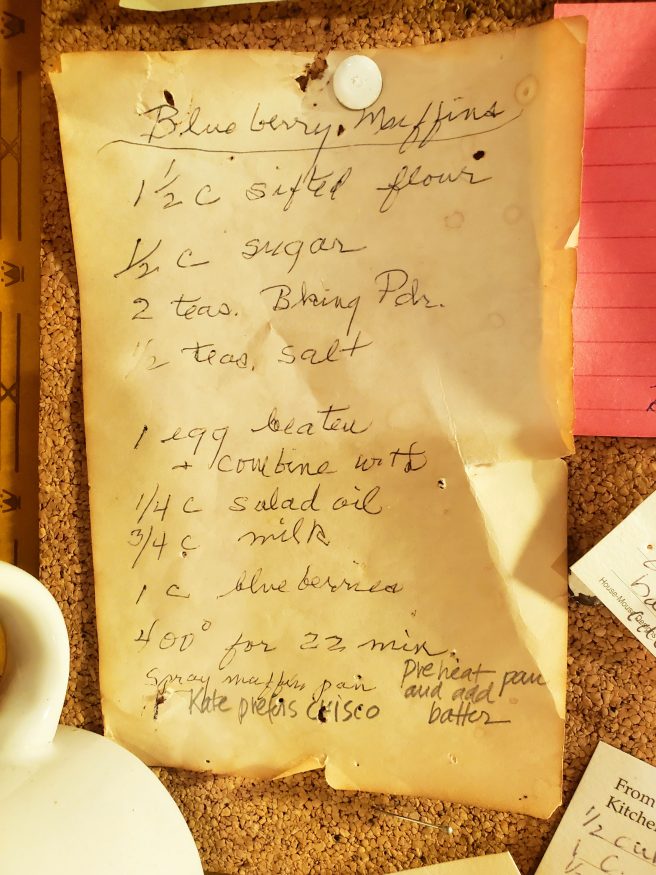 Blueberry Muffins
1 1/2 c sifted flour
1/2 c sugar
2 teas. Bking Pdr.
1/2 teas. salt
1 egg beaten
+ combine with
1/4 c salad oil
3/4 c milk
1 c blueberries
400° for 22 min.
Spray muffin pan
Kate prefers CRISCO
Preheat pan
and add
batter
House-Mouse
From
Kitche
1/2 cu
1 c